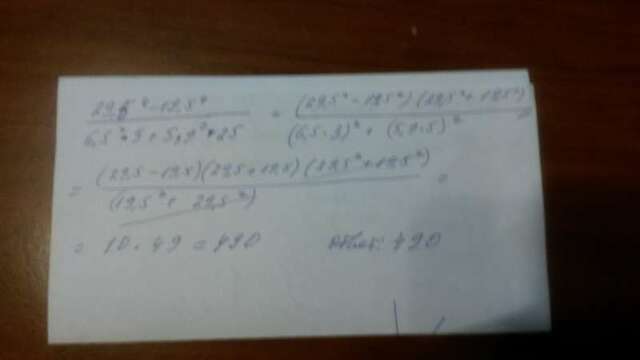 29,5⁴ - 19,5⁴ / 6,5² * 9 + 5,9² * 25 = (29,5² - 19,5²) (29,5² + 19,5²) / (6,5 · 3)² + (5,9 · 5)² =
= (29,5 - 19,5) (29,5 + 19,5) (29,5² + 19,5²) / (19,5² + 29,5²) =
= 10 · 49 = 490 Ответ: 490